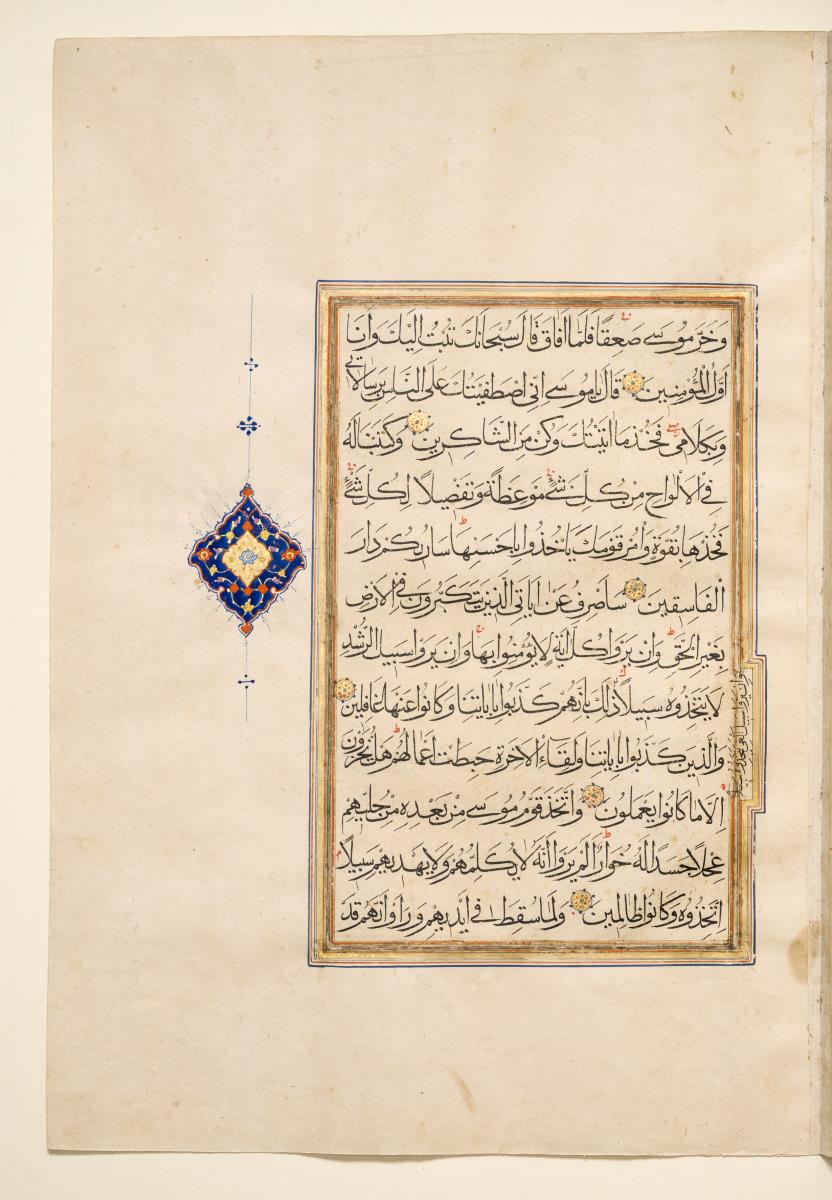 وَخَرَّ مُوسٰى صَعِقًا فَلَمَّا اَفَاقَ قَالَ سُبْحَانَكَ تُبْتُ اِلَيْكَ وَاَنَا
اَوَّلُ الْمُؤْمِنِينَ قَالَ يَا مُوسٰى اِنِّى اصْطَفَيْتُكَ عَلَى النَّاسِ بِرِسَالَاتِى
وَبِكَلَامِى فَخُذْ مَا اٰتَيْتُكَ وَكُنْ مِنَ الشَّاكِرِينَ وَكَتَبْنَا لَهُ
فِى الْاَلْوَاحِ مِنْ كُلِّ شَىْءٍ مَوْعِظَةً وَتَفْصِيلًا لِكُلِّ شَىْءٍ
فَخُذْهَا بِقُوَّةٍ وَأْمُرْ قَوْمَكَ يَاْخُذُوا بِاَحْسَنِهَا سَاُرِيكُمْ دَارَ
الْفَاسِقِينَ سَاَصْرِفُ عَنْ اٰيَاتِىَ الَّذِينَ يَتَكَبَّرُونَ فِى الْاَرْضِ
بِغَيْرِ الْحَقِّ وَاِنْ يَرَوْا كُلَّ اٰيَةٍ لَا يُؤْمِنُوا بِهَا وَاِنْ يَرَوْا سَبِيلَ الرُّشْدِ
لَا يَتَّخِذُوهُ سَبِيلًا ذٰلِكَ بِاَنَّهُمْ كَذَّبُوا بِاٰيَاتِنَا وَكَانُوا عَنْهَا غَافِلِينَ
وَالَّذِينَ كَذَّبُوا بِاٰيَاتِنَا وَلِقَاءِ الْاٰخِرَةِ حَبِطَتْ اَعْمَالُهُمْ هَلْ يُجْزَوْنَ
اِلَّا مَا كَانُوا يَعْمَلُونَ وَاتَّخَذَ قَوْمُ مُوسٰى مِنْ بَعْدِهِ مِنْ حُلِيِّهِمْ
عِجْلًا جَسَدًا لَهُ خُوَارٌ اَلَمْ يَرَوْا اَنَّهُ لَا يُكَلِّمُهُمْ وَلَا يَهْدِيهِمْ سَبِيلًا
اِتَّخَذُوهُ وَكَانُوا ظَالِمِينَ وَلَمَّا سُقِطَ فِى اَيْدِيهِمْ وَرَاَوْا اَنَّهُمْ قَدْ
وان يروا سبيل الغى يتخذوه سبيلا